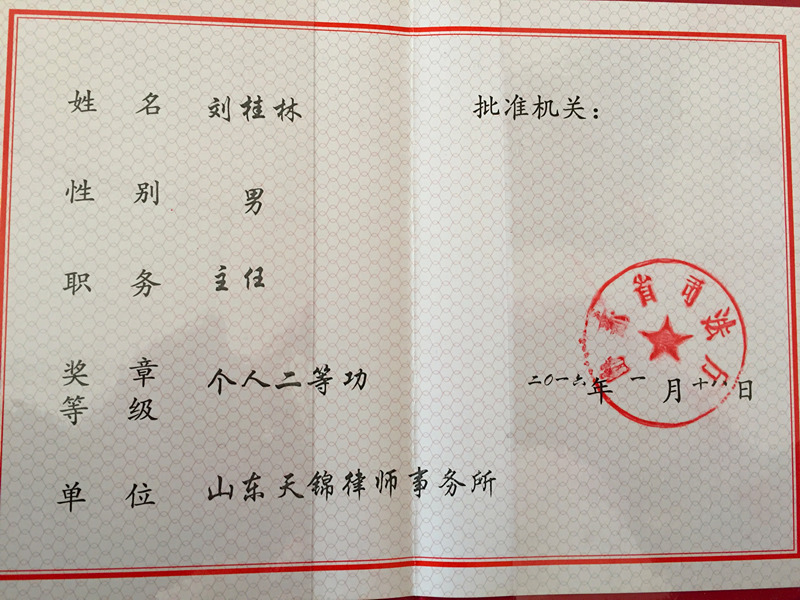 姓 名 刘桂林
性 别 男
职 务 主任
奖 章
等 级 个人二等功
单 位 山东天锦律师事务所
批准机关：
省司法厅
二〇一六年一月十八日